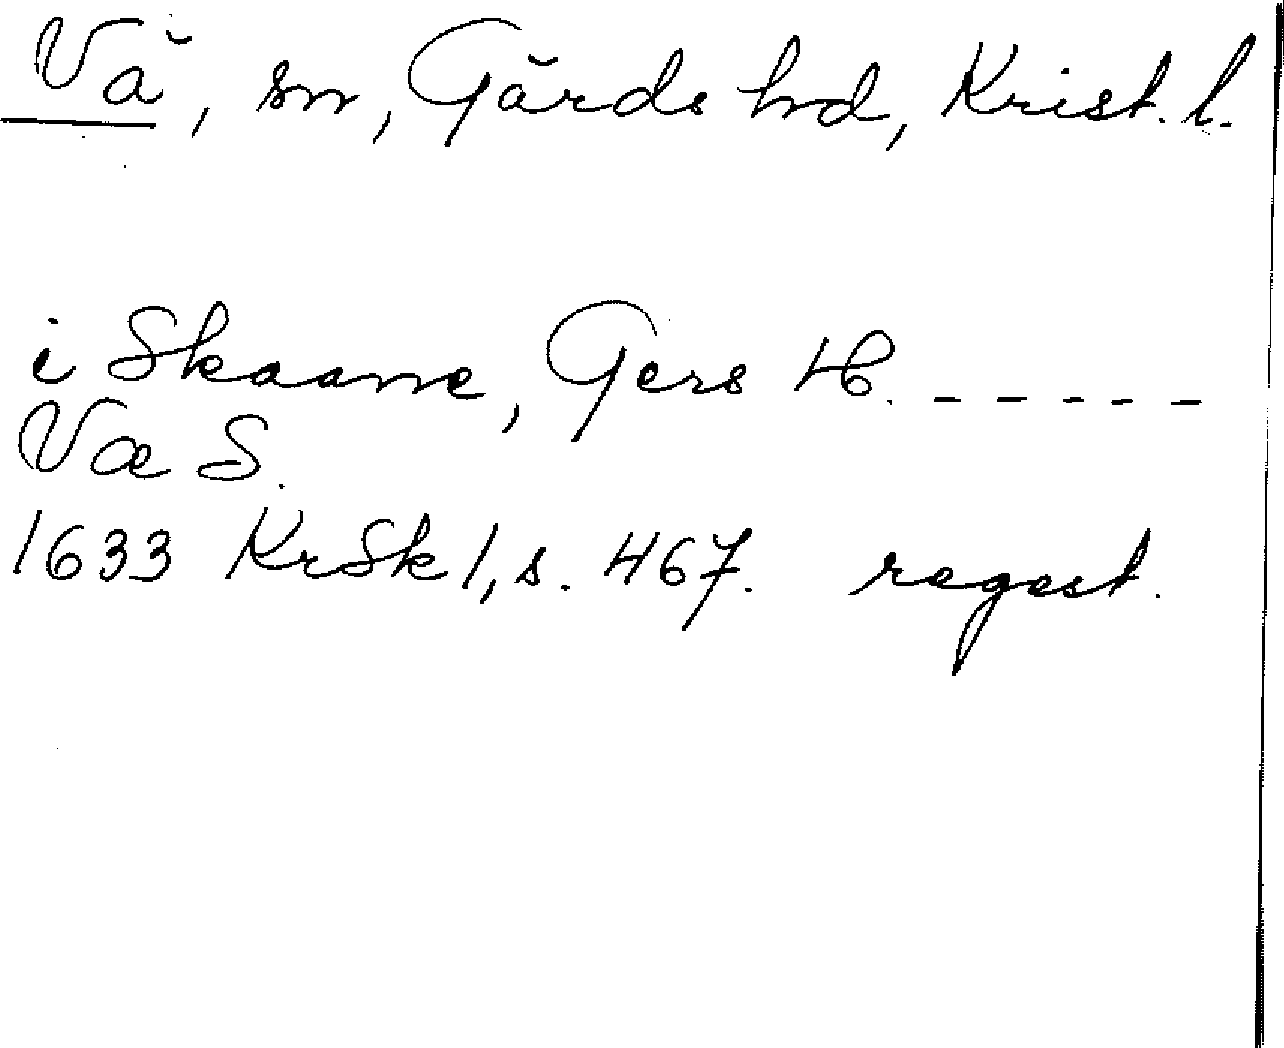 Vä, sn, Gärds hd, Krist. l.
i Skaane, Gers H. - - - - - -
Væ S.
1633 KrSk 1, s. 467. regest.